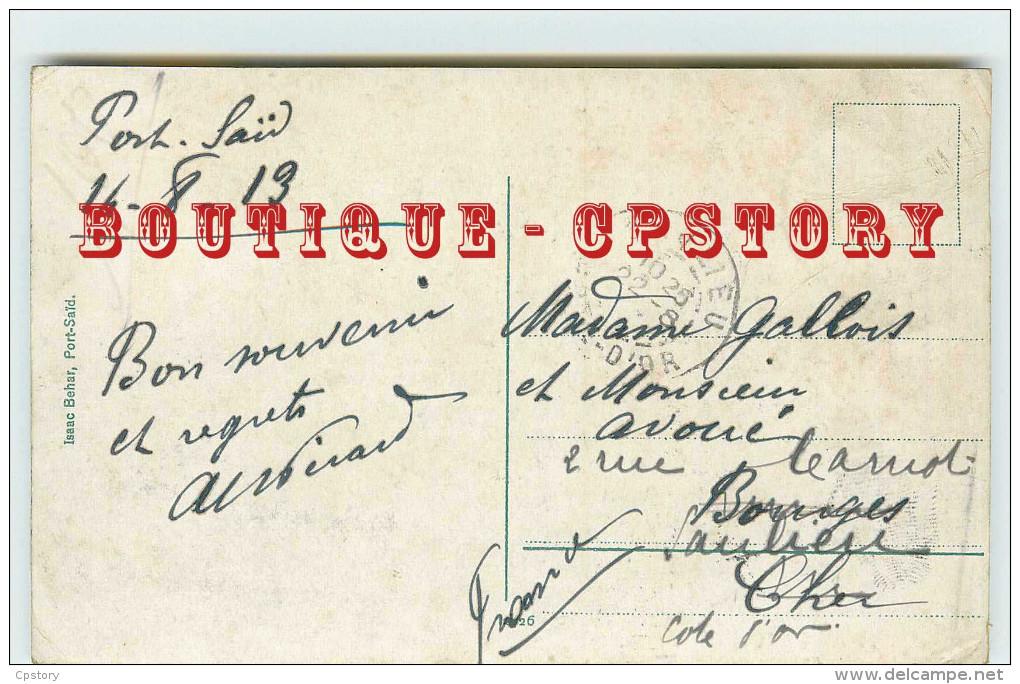 Port-Saïd
16-8-13
BOUTIQUE - CPSTORY
Isaac Behar, Port-Saïd.
Bon souvenir
et regrets
10 25
22 - 8
LIEU
-D'OR
Madame Gallois
et Monsieur
avoué
2 rue Carnot
Bourges
Saulieu
Cher
Cote d'or.
France
26
Cpstory
www.delcampe.net